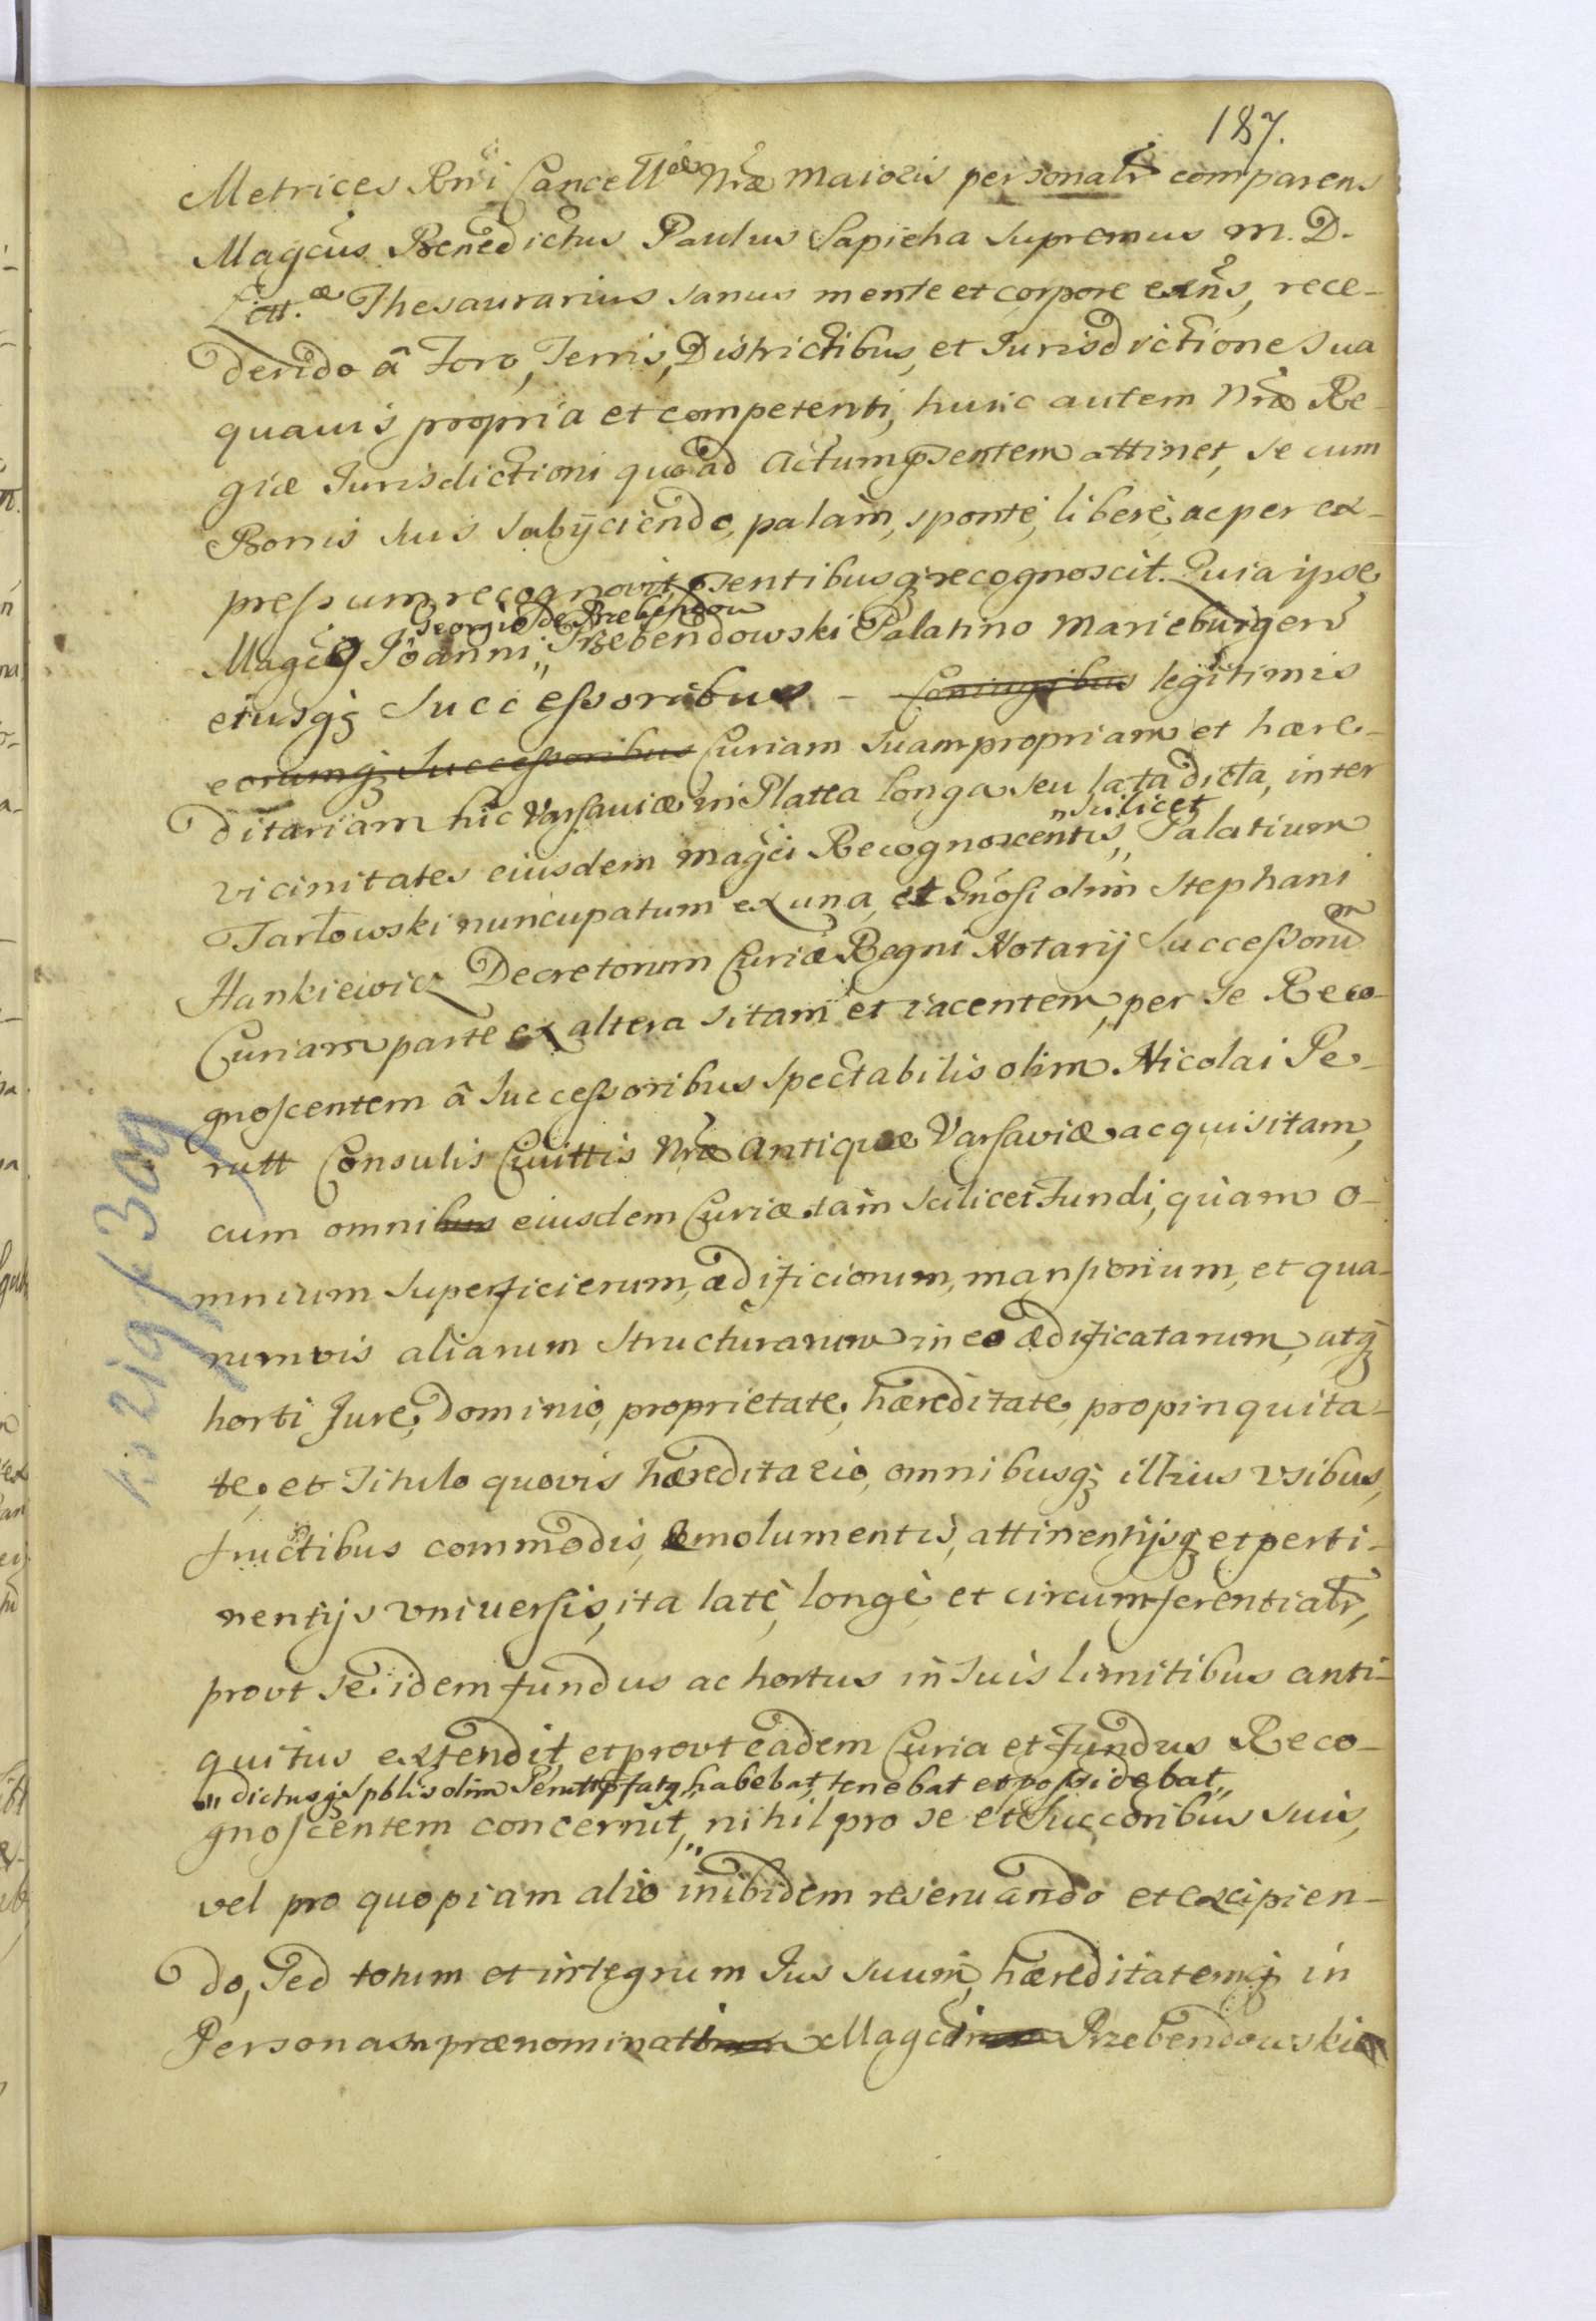 187.
Metrices Rnĩ Cancellae Nrae Maioris personalr comparens
Magcus Benedictus Paulus Sapieha Supremus M. D.
Litt.ae Thesaurarius sanus mente et corpore exñs, rece-
dendo â Foro, Terris, Districtibus, et Jurisdictione sua
quauis propria et competenti, huic autem Nrae Re-
giae Jurisdictioni quoad Actum pséntem attinet, se cum
Bonis suis subijciendo, palàm, spontè, liberè, ac per ex-
pressum recognovit, psentibusqȝ recognoscit. Quia ipse
Georgio de Przebendow
Magco Joanni,, Przebendowski Palatino Marieburgen
eiusqȝ Successoribus - Coniugibus legitimis
eorumqȝ Successoribus Curiam suam propriam et haere-
ditariam hic Varsauiae in Platea longa seu lata dicta, inter
,, scilicet
vicinitates eiusdem Magci Recognoscentis,, Palatium
Tarłowski nuncupatum ex una, et Gnosi olim Stephani
Hankiewicz Decretorum Curiae Regni Notarij Successorum
Curiam parte ex altera sitam et iacentem, per se Reco-
gnoscentem â Successoribus spectabilis olim Nicolai Pe-
rutt Consulis Ciuittis Nrae Antiquae Varsaviae acquisitam,
cum omnibus eiusdem Curiae tàm scilicet Fundi, quàm o-
mnium superficierum, aedificiorum, mansionum, et qua-
rumvis aliarum structurarum in eo aedificatarum, atqȝ
horti Jure, Dominio, proprietate, haereditate, propinquita-
te, et Titulo quovis haereditario, omnibusqȝ illius vsibus,
fructibus commodis, emolumentis, attinentijsqȝ et perti-
nentijs vniuersis, ita latè, longè, et circumferentialr,
provt se idem fundus ac hortus in suis limitibus anti-
quitus extendit, et provt eadem Curia et Fundus Reco-
,, dictusqȝ spblis olim Perutt pfatq habebat, tenebat et possidebat,,
gnoscentem concernit,,, nihil pro se et Succoribus suis,
vel pro quopiam alio inibidem reseruando et excipien-
do, Sed totum et integrum Jus suum, haereditatemqȝ in
Personam praenominati Magci Przebendowski